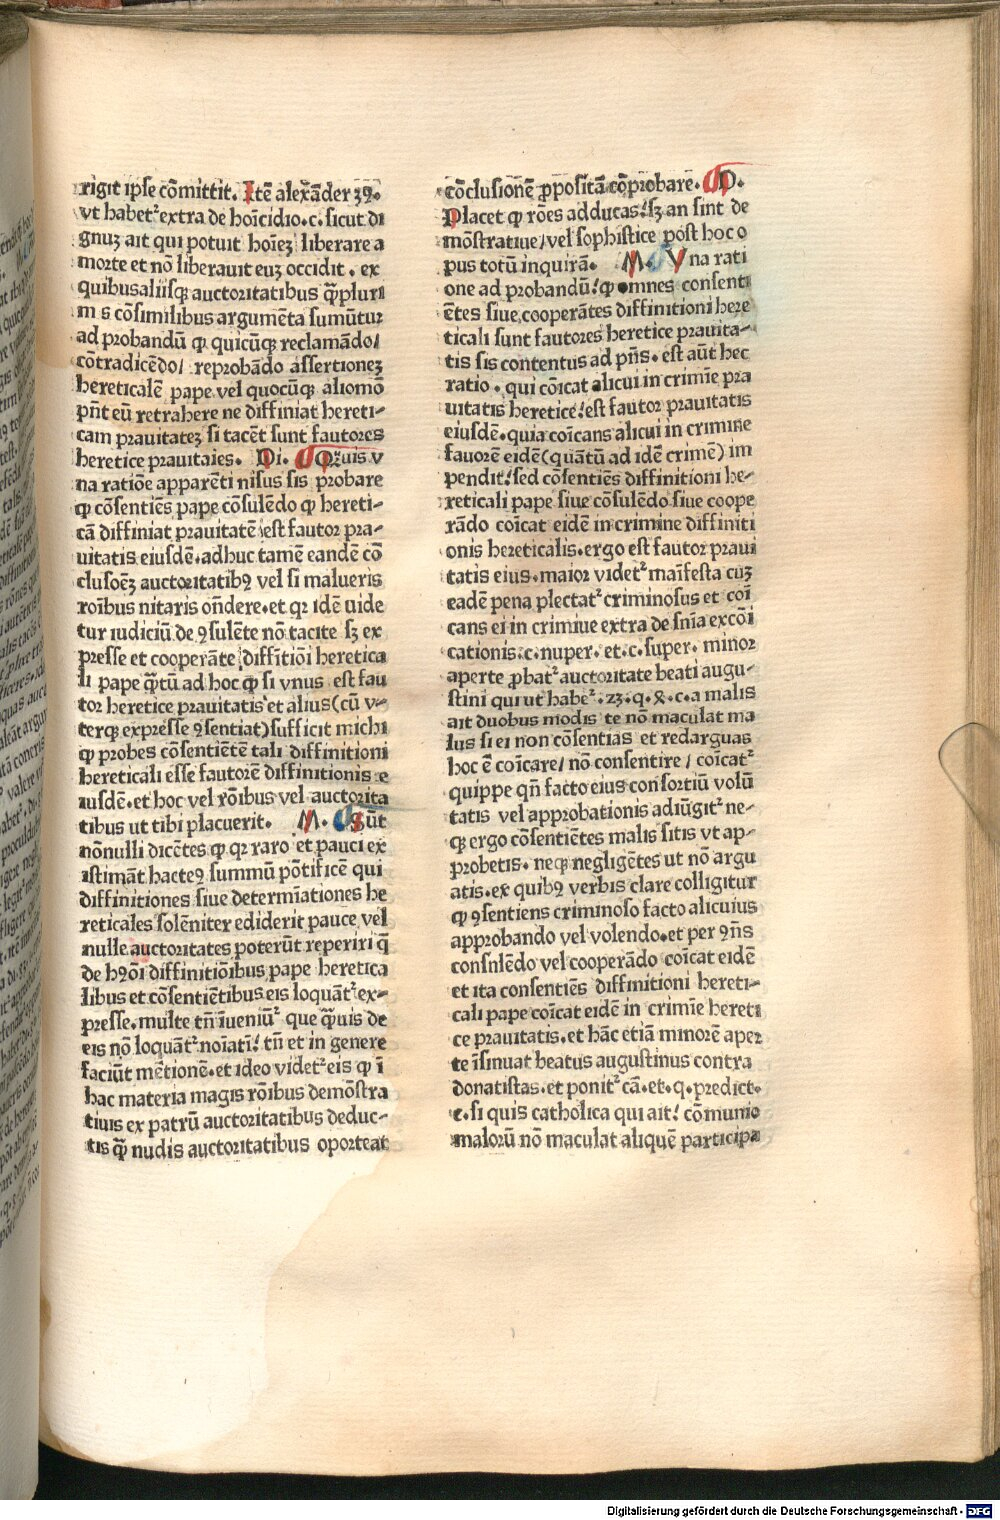 rigit ipse cōmittit. Itē alexāder 3ꝰ.
vt habetᷣ extra de hoīcidio.c. sicut di
gnuꝫ ait qui potuit hoīeꝫ liberare a
morte et nō liberauit euꝫ occidit . ex
quibus aliisqꝫ auctoritatibus q̄ꝫpluri
m s cōsimilibus argumēta sumūtur
ad probandū ꝙ quicūqꝫ reclamādo/
cōtradicēdo/ reprobādo assertioneꝫ
hereticalē pape vel quocūqꝫ aliomō
pn̄t eū retrahere ne diffiniat hereti-
cam prauitateꝫ si tacēt sunt fautores
heretice prauitaies. Di. Qᷓuis v
na ratiōe apparēti nisus sis probare
ꝙ cōsentiēs pape cōsulēdo ꝙ hereti-
cā diffiniat prauitatē est fautor pra-
uitatis eiusdē.adhuc tamē eandē cō
clusoēꝫ auctoritatibꝰ vel si malueris
roībus nitaris on̄dere.et qꝛ idē uide
tur iudiciū de ꝯsulēte nō tacite sꝫ ex
presse et cooperāte diffītiōi heretica
li pape q̄ꝫtū ad hoc ꝙ si vnus est fau
tor heretice prauitatis et alius(cū v-
terqꝫ expresse ꝯsentiat)sufficit michi
ꝙ probes cōsentiētē tali diffinitioni
hereticali esse fautorē diffinitionis e
iusdē.et hoc vel rōibus vel auctorita
tibus ut tibi placuerit. M. Sūt
nōnulli dicētes ꝙ qꝛ raro et pauci ex
istimāt hacteꝰ summū pōtificē qui
diffinitiones siue determīationes he
reticales solēniter ediderit pauce vel
nulle auctoritates poterūt reperiri q̄
de hꝰōi diffinitiōibus pape heretica
libus et cōsentiētibus eis loquātᷣ ex-
presse.multe tn̄ īueniūᷣ que q̄ꝫuis de
eis nō loquātᷣ noīatī: tn̄ et in genere
faciūt mētionē.et ideo videtᷣ eis ꝙ ī
hac materia magis rōibus demōstra
tiuis ex patrū auctoritatibus deduc-
tis q̄ꝫ nudis auctoritatibus oporteat
cōclusionē ꝓpositā cōprobare. D.
Placet ꝙ rōes adducas: sꝫ an sint de
mōstratiue/vel sophistice post hoc o
pus totū inquirā. M. Vna rati
one ad probandū: ꝙ omnes consenti
ētes siue cooperātes diffinitioni here
ticali sunt fautores heretice prauita-
tis sis contentus ad pn̄s. est aūt hec
ratio . qui cōicat alicui in crimīe pra
uitatis heretice: est fautor prauitatis
eiusdē.quia coīcans alicui in crimine
fauorē eidē(quātū ad idē crimē) im
pendit: sed cōsentiēs diffinitioni he-
reticali pape siue cōsulēdo siue coope
rādo coīcat eidē in crimine diffiniti
onis hereticalis.ergo est fautor praui
tatis eius.maior videtᷣ maīfesta cuꝫ
eadē pena plectatᷣ criminosus et coī
cans ei in crimiue extra de sn̄ia excōi
cationis.c.nuper. et.c.super. minor
aperte ꝓbatᷣ auctoritate beati augu-
stini qui ut habeᷣ .23.q.8.c.a malis
ait duobus modis te nō maculat ma
lus si ei non cōsentias et redarguas
hoc ē coīcare/ nō consentire / coīcatᷣ
quippe qn̄ facto eius consortiū volū
tatis vel approbationis adiūgitᷣ ne-
qꝫ ergo cōsentiētes malis sitis vt ap-
probetis. neqꝫ negligētes ut nō argu
atis.ex quibꝰ verbis clare colligitur
ꝙ ꝯsentiens criminoso facto alicuius
approbando vel volendo.et per ꝯn̄s
consnlēdo vel cooperādo coīcat eidē
et ita consentiēs diffinitioni hereti-
cali pape coīcat eidē in crimīe hereti
ce prauitatis.et hāc etiā minorē aper
te īsinuat beatus augustinus contra
donatistas.et ponitᷣ cā.et.q.predict.
c.si quis catholica qui ait: cōmunio
malorū nō maculat aliquē participa
Digitalisierung gefördert durch die Deutsche Forschungsgemeinschaft - DFG